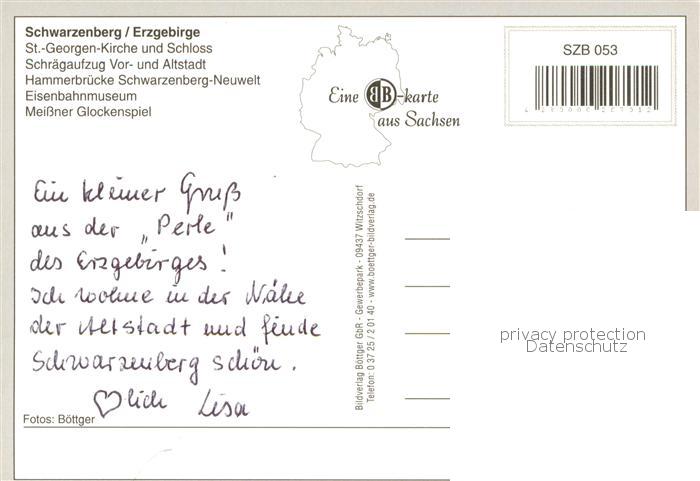 Schwarzenberg / Erzgebirge
St.-Georgen-Kirche und Schloss
Schrägaufzug Vor- und Altstadt
Hammerbrücke Schwarzenberg-Neuwelt
Eisenbahnmuseum
Meißner Glockenspiel
Eine BB-karte
aus Sachsen
SZB 053
Ein kleiner Gruß
aus der „Perle"
des Erzgebirges!
Ich wohne in der Nähe
der Altstadt und finde
Schwarzenberg schön.
♡lich Lisa
Fotos: Böttger
Bildverlag Böttger GbR - Gewerbepark - 09437 Witzschdorf
Telefon: 0 37 25 / 2 01 40 - www.boettger-bildverlag.de
privacy protection
Datenschutz